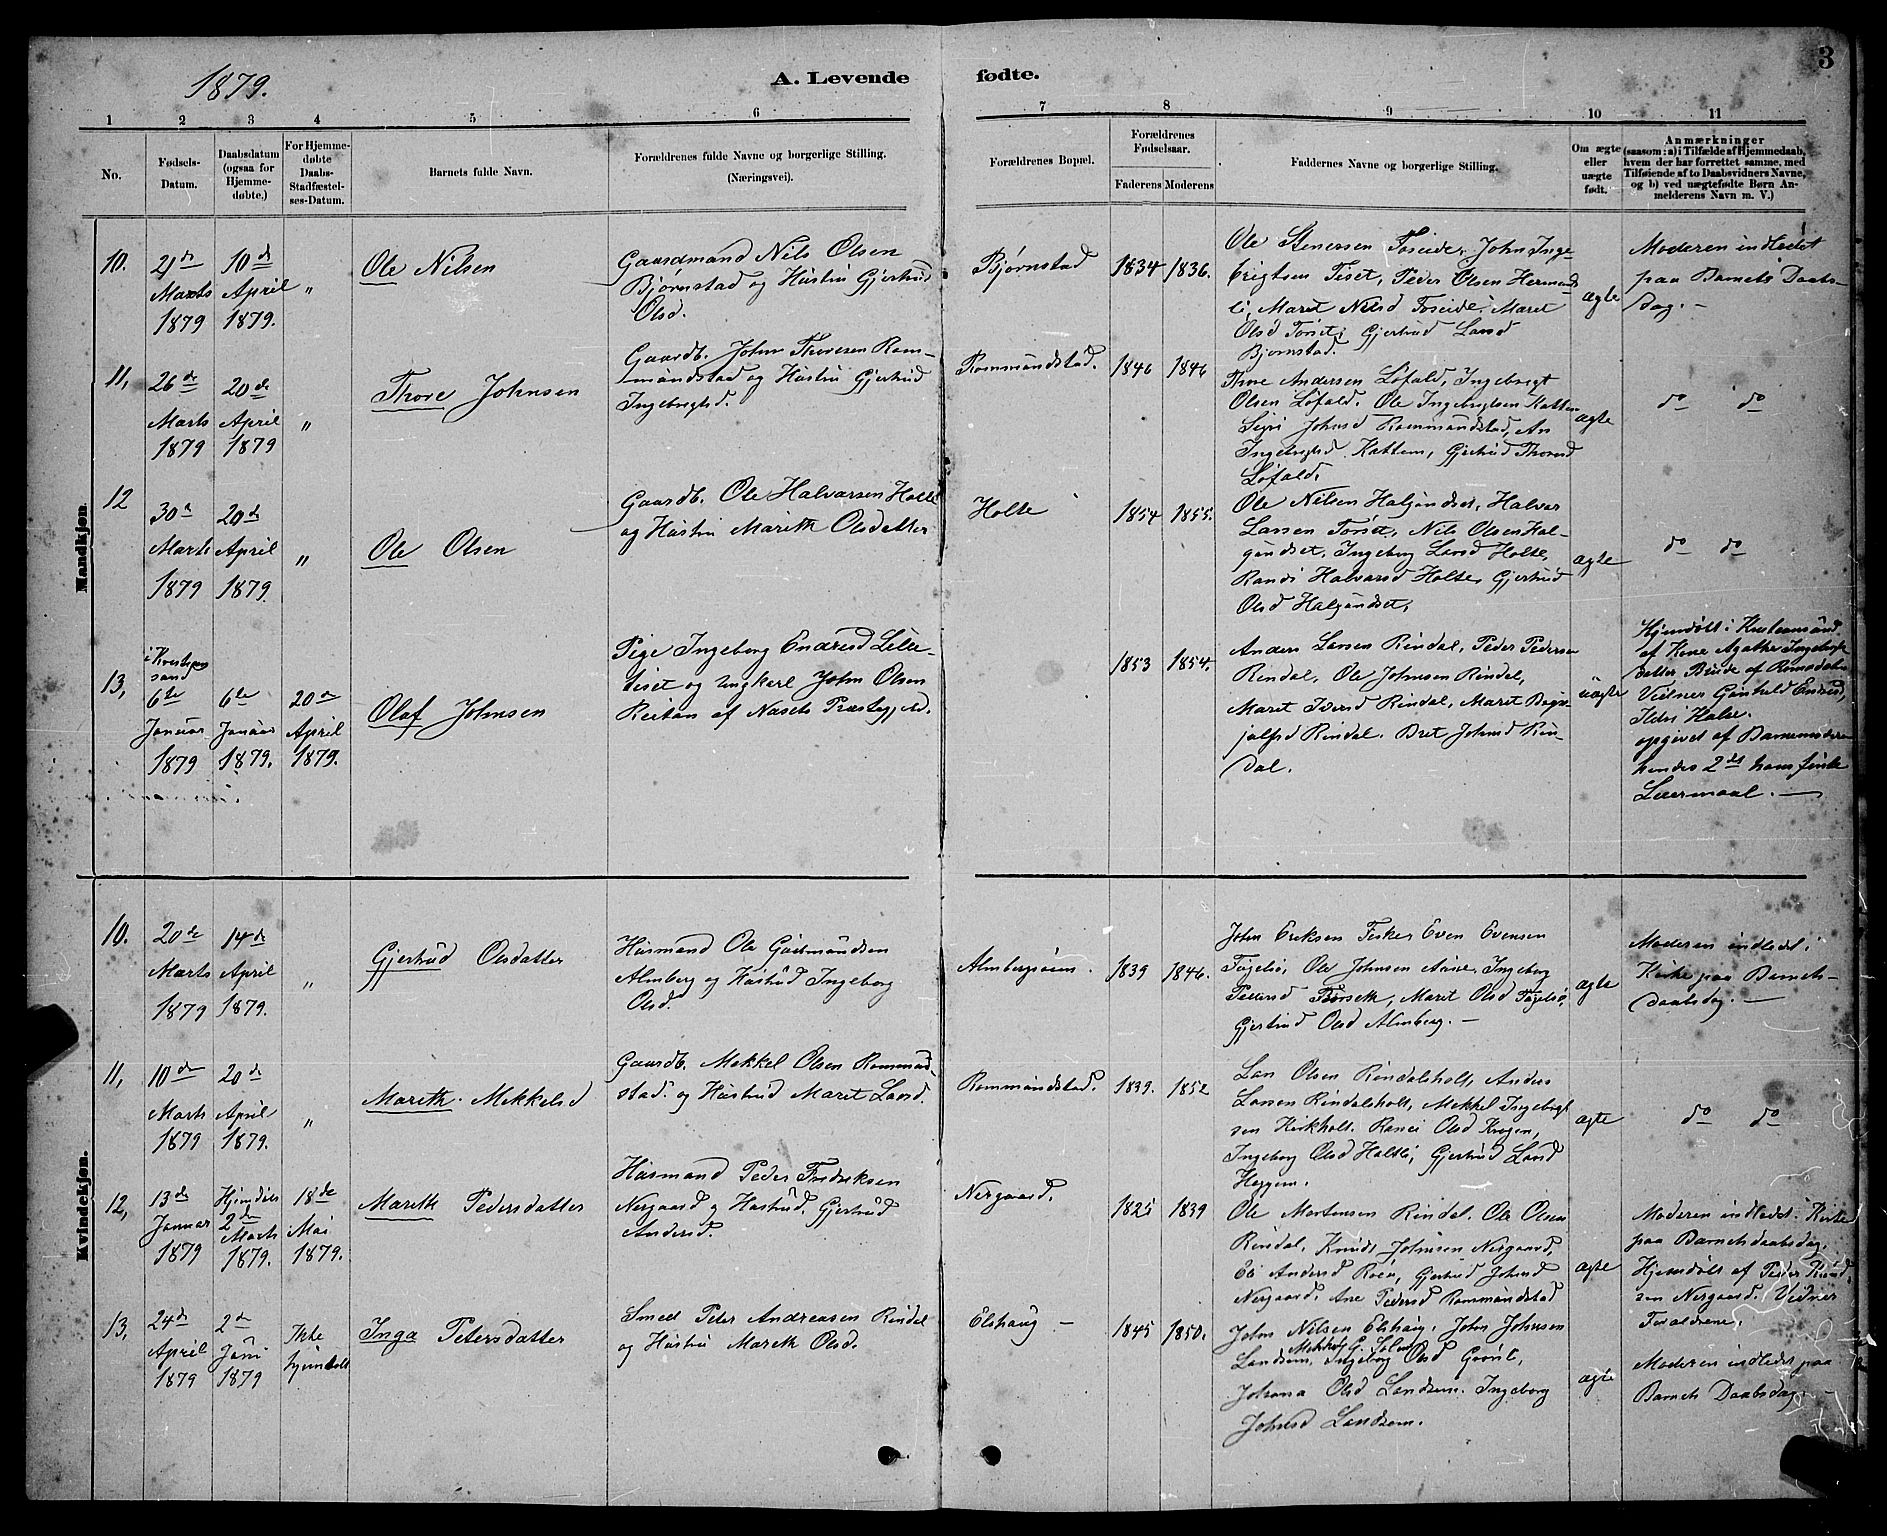 3
1879.
A. Levende fødte.
1 2 3 4 5 6 7 8 9 10 11
No.
Fødsels-
Datum.
Daabsdatum
(ogsaa for
Hjemme-
døbte.)
For Hjemme-
døbte
Daabs-
Stadfæstel-
ses-Datum.
Barnets fulde Navn.
Forældrenes fulde Navne og borgerlige Stilling.
(Næringsvei).
Forældrenes Bopæl.
Forældrenes
Fødselsaar.
Faderens Moderens
Faddernes Navne og borgerlige Stilling.
Om ægte
eller
uægte
født.
Anmærkninger
(saasom: a) i Tilfælde af Hjemmedaab,
hvem der har forrettet samme, med
Tilføiende af to Daabsvidners Navne,
og b) ved uægtefødte Børn An-
melderens Navn m. V.)
Mandkjøn.
10.
21de
Marts
1879
10de
April
1879.
"
Ole Nilsen
Gaardmand Nils Olsen
Bjørnstad og Hustru Gjertrud
Olsd.
Bjørnstad
1834
1836.
Ole Stenersen Foseide, John Inge-
brigtsen Tiset, Peder Olsen Hermands
li, Maret Nilsd Foseide, Maret
Olsd Torset, Gjertrud Larsd
Bjørnstad.
ægte
Moderen indledet
paa Barnets Daabs-
dag. –
11,
26de
Marts
1879
20de
April
1879
"
Thore Johnsen
Gaardb. John Thoresen Rom-
mundstad og Hustru Gjertrud
Ingebrigtsd.
Rommundstad.
1846
1846
Thore Andersen Løfald, Ingebrigt
Olsen Løfald. Ole Ingebrigtsen Kattem
Sigri Johnsd Rommundstad, An
Ingebrigtsd. Kattem, Gjertrud Thoresd
Løfald,
ægte
do do
12
30te
Marts
1879
20de
April
1879.
"
Ole Olsen
Gaardb. Ole Halvarsen Holte
og Hustru Marith Olsdatter
Holte
1854
1855.
Ole Nilsen Halgundset, Halvar
Larsen Torset, Nils Olsen Hal-
gundset, Ingeborg Larsd Holte,
Randi Halvarsd Holte, Gjertrud
Olsd Halgundset,
ægte
do do
13,
i Kristian
sund
6te
Januar
1879
6te
Januar
1879.
20de
April
1879.
Olaf Johnsen
Pige Ingeborg Endresd Lille-
tiset og Ungkarl John Olsen
af Præstegjæld.
1853
1854.
Anders Larsen Rindal, Peder Pedersen
Rindal, Ole Johnsen Rindal,
Maret Iversd Rindal, Maret
Rindal. Bret Johnsd Rin-
dal.
uægte
Hjemdøbt i Kristiansund
af Kone Agathe
datter Brude af Romsdalen
Vidner Gunhild Endresd,
Ildri Halse.
opgivet af Barnemoderen
hendes 2det hans første
Leiermaal. –
Kvindekjøn.
10.
20de
Marts
1879
14de
April
1879.
"
Gjertrud Olsdatter
Husmand Ole Gudmundsen
Almberg og Hustrud Ingeborg
Olsd.
1839
1846.
John Eriksen Fiske, Even Evensen
Fugelsø, Ole Johnsen Aune, Ingeborg
Pedersd Torseth, Marit Olsd Fugelsø,
Gjertrud Olsd Almberg. –
ægte
Moderen indledet i
Kirke paa Barnets
daabsdag. –
11,
10de
Marts
1879
20de
April
1879.
"
Marith Mekkelsd
Gaardb. Mekkel Olsen Rommund
stad og Hustrud Maret Larsd.
Rommundstad.
1839.
1852
Lars Olsen Rindalsholt, Anders
Larsen Rindalsholt, Mekkel Ingebrigt
sen Kirkholt. Randi Olsd Krogen,
Ingeborg Olsd Holtli, Gjertrud Larsd
Heggem.
ægte
do do
12,
13de
Januar
1879
Hjemdøbt
2den
Marts
1879.
18de
Mai
1879.
Marith Pedersdatter
Husmand Peder Fredriksen
Nergaard og Hustrud, Gjertrud
Andersd.
Nergaard.
1825
1839
Ole Mortensen Rindal. Ole Olsen
Rindal, Knudt Johnsen Nergaard,
Eli Andersd Roen, Gjertrud Johnsd
Nergaard, Ane Pedersd Rommundstad
ægte
Moderen indledet i Kirke
paa Barnets daabsdag.
Hjemdøbt af Peder
sen Nergaard. Vidner
Forældrene.
13,
24de
April
1879
2den
Juni
1879
Ikke
hjemdøbt
Inga Petersdatter
Smed Peter Andreasen Rindal
og Hustru Marith Olsd.
Elshaug –
1845
1850.
John Nilsen Elshaug, John Johnsen
Landsem, Ingeborg Olsd
Johana Olsd Landsem. Ingeborg
Johnsd Landsem.
ægte
Moderen indledet paa
Barnets Daabsdag –